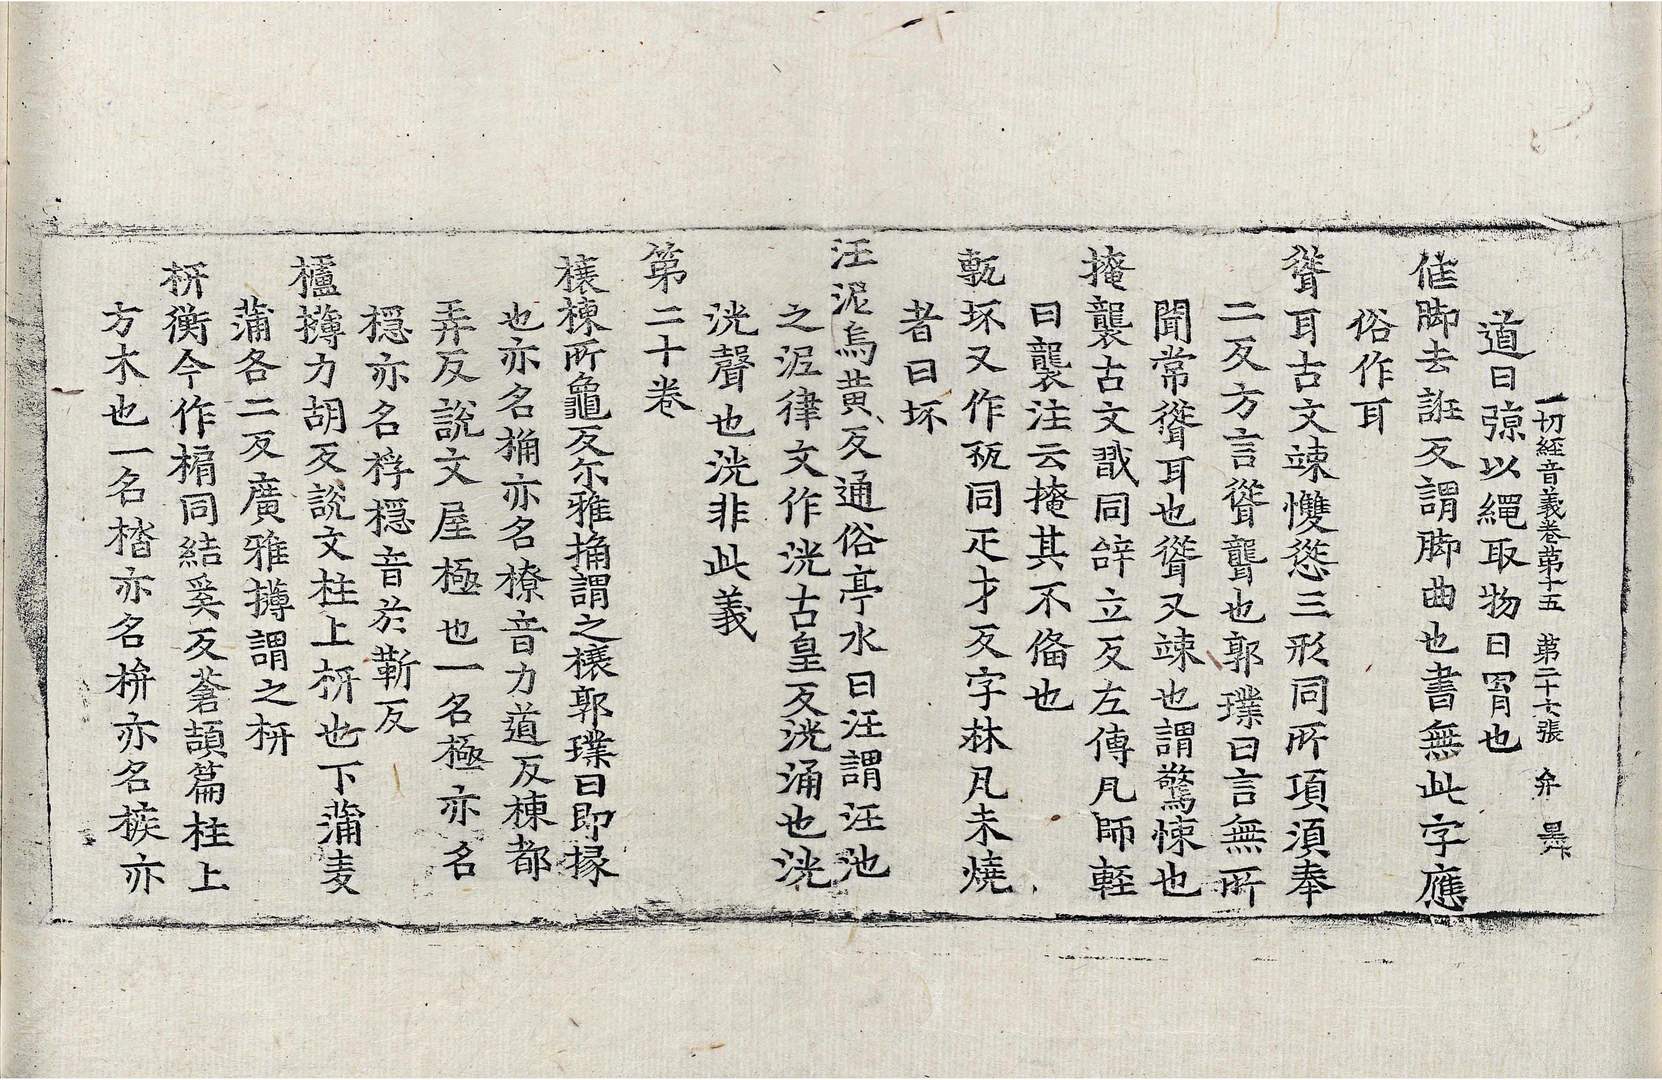 一切經音義卷第十五 第二十七張 弁
道曰弶以繩取物曰罥也
㑌脚去誑反謂脚曲也書無此字應
俗作耳
聳耳古文竦㩳慫三形同所項須奉
二反方言聳聾也郭璞曰言無所
聞常聳耳也聳又竦也謂驚悚也
掩襲古文戢同辝立反左傳凡師輕
曰襲注云掩其不俻也
甎坏又作㼦同疋才反字林凡未燒
者曰坏
汪泥烏黄反通俗亭水曰汪謂汪池
之泥律文作洸古皇反洸涌也洸
洸聲也洸非此義
第二十卷
榱棟所龜反尒雅桷謂之榱郭璞曰即椽
也亦名桷亦名橑音力道反棟都
弄反說文屋極也一名極亦名
檼亦名桴檼音於靳反
櫨欂力胡反說文柱上枅也下蒲麦
蒲各二反廣雅欂謂之枅
枅衡今作楣同結奚反蒼頡篇柱上
方木也一名楷亦名枡亦名㭿亦